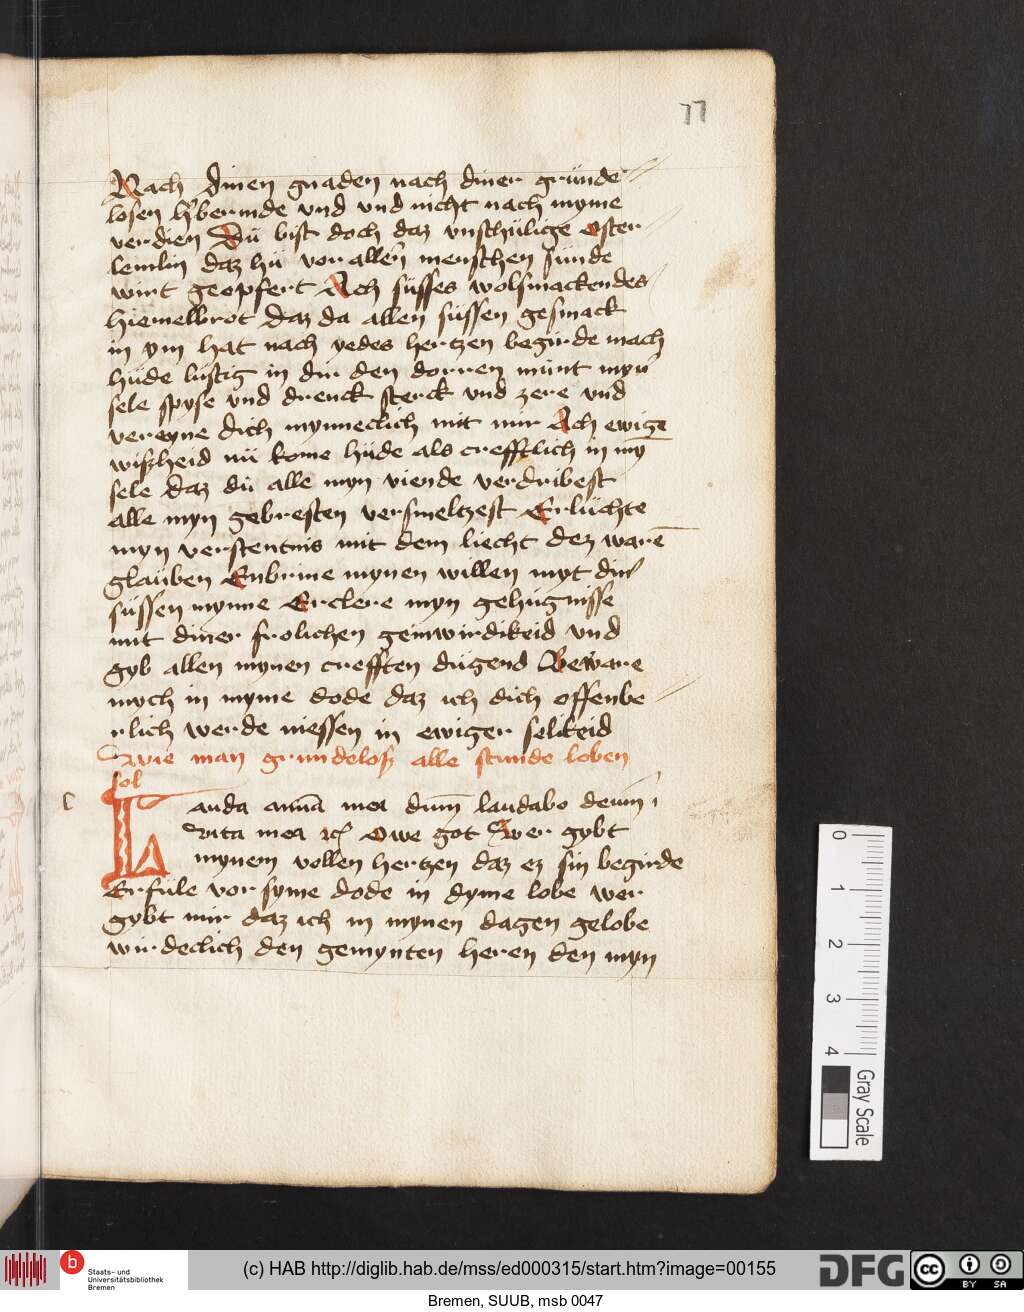 77
Nach dinen gnaden nach diner gründe
losen h'bermde vnd vnd nicht nach myme
verdien Dü bist doch daz vnschülige oster
lemlin daz hü vor allen menschen sünde
wirt geopfert Ach süsses wolsmackendes
hiemelbrot daz da allen süssen gesmack
in ym hat nach yedes hertzen begirde mach
hüde lüstig in dir den dorren münt myn
sele spyse vnd drenck sterck vnd zere vnd
vereyne dich mynneclich mit mir Ach ewige
wißheid nü kome hüde als crefftlich in my̅
sele daz dü alle myn viende verdribest
alle myn gebresten versmeltzest Erlüchte
myn verstentnis mit dem liecht dez ware̅
glauben Enbrine mynen willen myt din'
süssen mynne Erclere myn gehügnisse
mit diner frolichen geinwirdikeid vnd
gyb allen mynen crefften dügend Beware
mych in myme dode daz ich dich offenbe
rlich werde niessen in ewiger selikeid
Wie man grundeloß alle stunde loben
sol
Lauda a̅i̅a̅ mea du̅m laudabo deum ı
vita mea ꝛc̅ Owe got Wer gybt
mynem vollen hertzen daz ez sin begirde
Erfüle vor syme dode in dyme lobe wer
gybt mir daz ich in mynen dagen gelobe
wirdeclich den gemynten heren den myn
0
1
2
3
4
Gray Scale
b
Staats- und
Universitätsbibliothek
Bremen
(c) HAB http://diglib.hab.de/mss/ed000315/start.htm?image=00155
DFG
cc BY SA
Bremen, SUUB, msb 0047